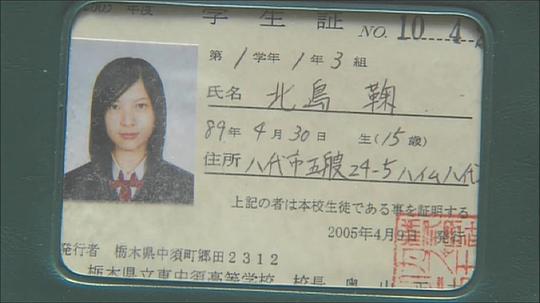 2005年度 学生証 NO. 10 4
第1学年1年3組
氏名 北島 鞠
89年4月30日 生(15歳)
住所 八代市五陵24-5ハイム八代
上記の者は本校生徒である事を証明する
2005年4月9日 発行
発行者 栃木県中須町郷田2312
栃木県立東中須高等学校 校長 奥山